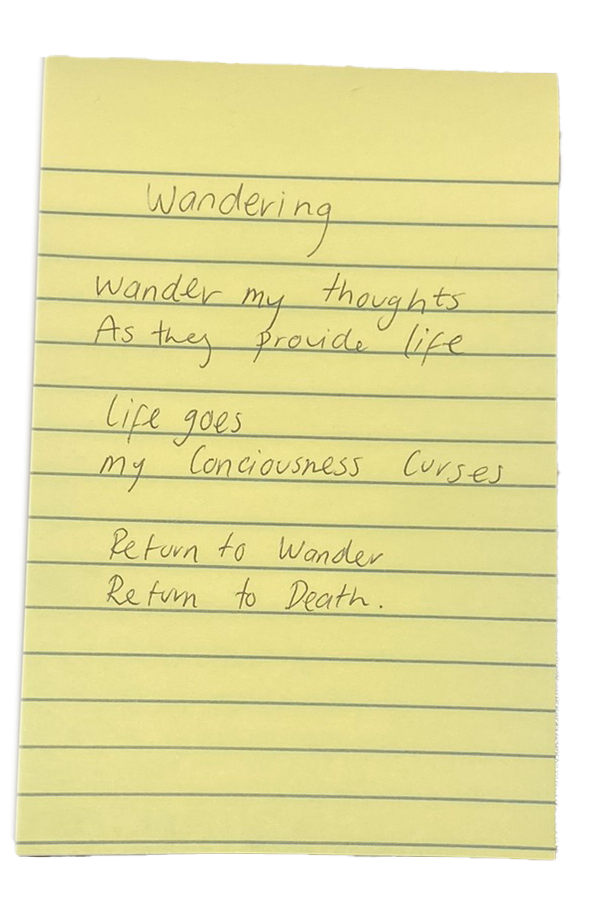 Wandering
Wander my thoughts
As they provide life
Life goes
my Conciousness Curses
Return to Wander
Return to Death.